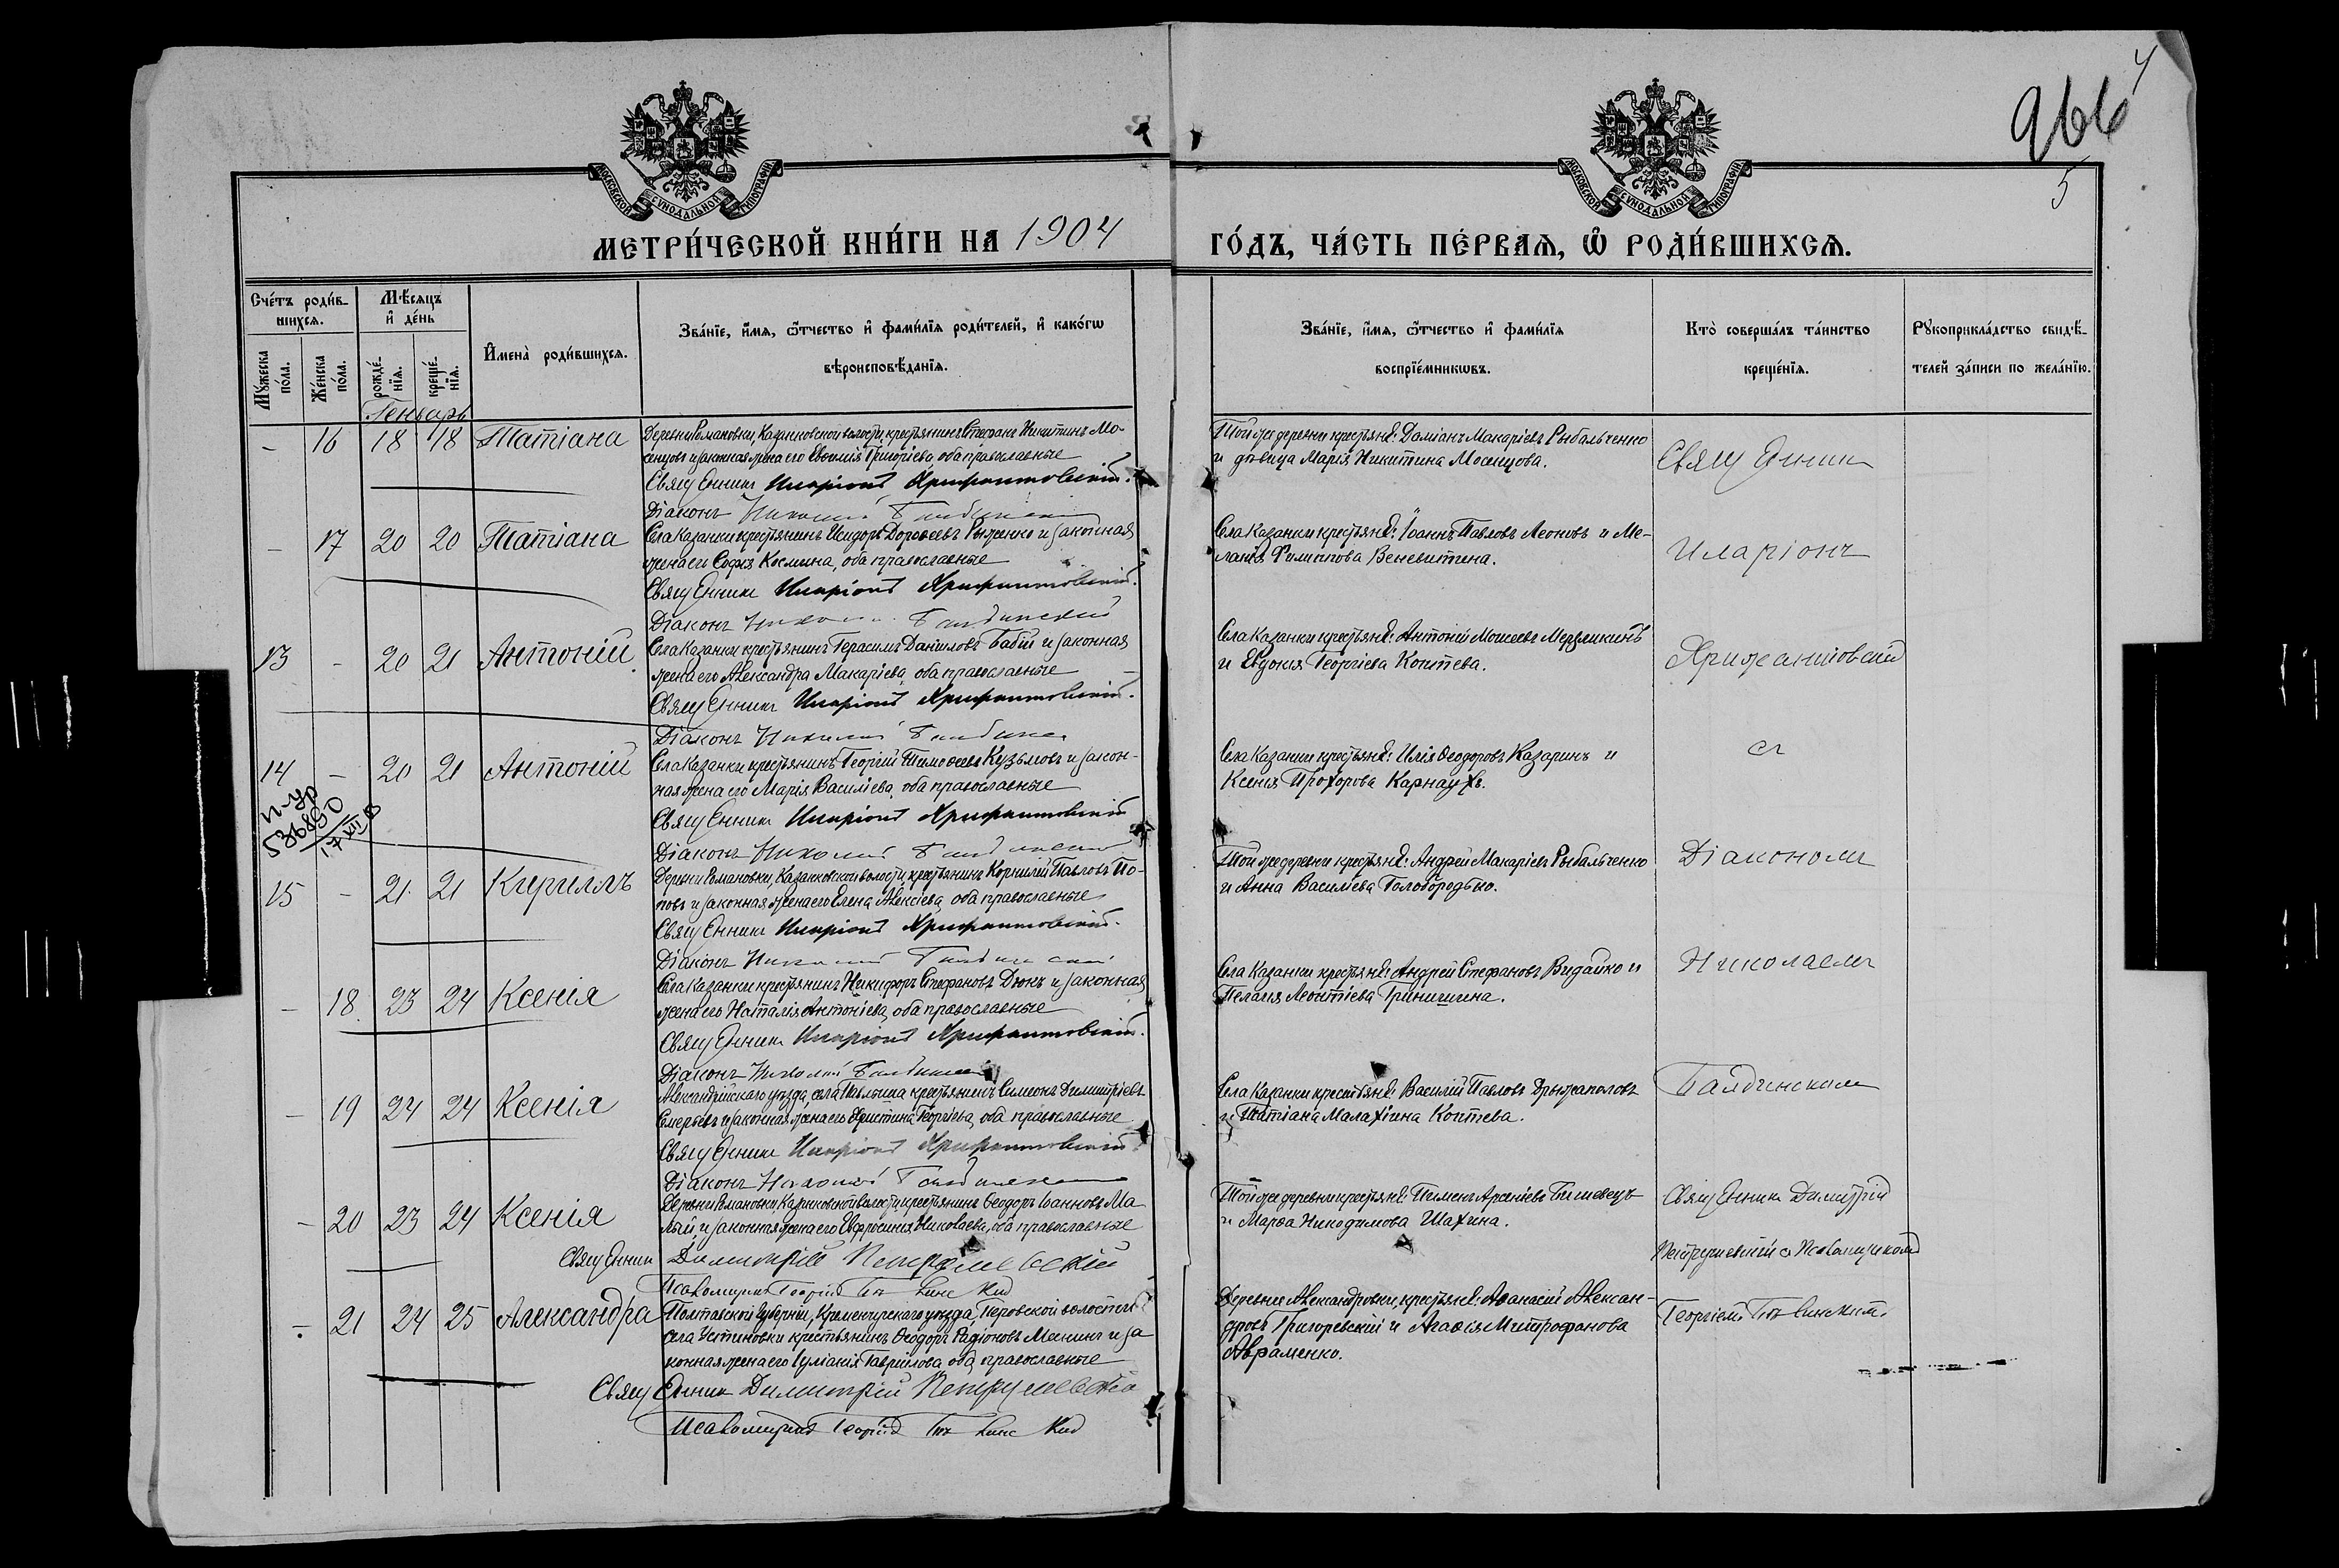 4
966
5
МОСКОВСКОЙ СѴНОДАЛЬНОЙ ТИПОГРАФІИ
МОСКОВСКОЙ СѴНОДАЛЬНОЙ ТИПОГРАФІИ
МЕТРИ́ЧЕСКОЙ КНИ́ГИ НА 1904
ГО́ДЪ, ЧА́СТЬ ПЕ́РВАѦ, Ѽ РОДИ́ВШИХСѦ.
Сче́тъ роди́в-
шихсѧ.
Мꙋ́жеска по́ла.
Же́нска по́ла.
Мѣ́сѧцъ
и҆ де́нь
рожде́-
нїѧ.
креще́-
нїѧ.
И҆мена̀ роди́вшихсѧ.
Зва́нїе, и҆́мѧ, ѻ҆́тчество и҆ фами́лїѧ роди́телей, и҆ како́гѡ
вѣроисповѣ́данїѧ.
Зва́нїе, и҆́мѧ, ѻ҆́тчество и҆ фами́лїѧ
воспрїе́мникѡвъ.
Кто̀ соверша́лъ та́инство
креще́нїѧ.
Рꙋкоприкла́дство свидѣ́-
телей за́писи по жела́нїю.
Генварь
- 16 18 18 Татіана
Деревни Романовки, Казанковской волости, крестьянинъ Стефанъ Никитинъ Мо-
сенцовъ и законная жена его Евѳимія Григоріева, оба православные
Священникъ Иларіонъ Хрисанѳовскій.
Діаконъ Николай
Той же деревни крестьяне: Даміанъ Макаріевъ Рыбальченко
и дѣвица Марія Никитина Мосенцова.
- 17 20 20 Татіана
Села Казанки крестьянинъ Исидоръ Дороѳеевъ Рыженко и законная
жена его Софія Космина, оба православные
Священникъ Иларіонъ Хрисанѳовскій.
Діаконъ Николай
Села Казанки крестьяне: Іоаннъ Павловъ Леоновъ и Ме-
ланія Филиппова Веневитина.
13 - 20 21 Антоній
Села Казанки крестьянинъ Герасимъ Даниловъ Бабій и законная
жена его Александра Макаріева, оба православные
Священникъ Иларіонъ Хрисанѳовскій.
Діаконъ Николай
Села Казанки крестьяне: Антоній Моисеевъ Мерзликинъ
и Евдокія Георгіева Коптева.
14 - 20 21 Антоній
536890
17 XII
Села Казанки крестьянинъ Георгій Тимоѳеевъ Кузьмовъ и закон-
ная жена его Марія Василіева, оба православные
Священникъ Иларіонъ Хрисанѳовскій
Діаконъ Николай
Села Казанки крестьяне: Илія Ѳеодоровъ Казаринъ и
Ксенія Прохорова Карнаухъ.
15 - 21 21 Кириллъ
Деревни Романовки, Казанковской волости, крестьянинъ Корнилій Павловъ По-
повъ и законная жена его Елена Алексіева, оба православные
Священникъ Иларіонъ Хрисанѳовскій.
Діаконъ Николай
Той же деревни крестьяне: Андрей Макаріевъ Рыбальченко
и Анна Василіева Голобородько.
- 18 23 24 Ксенія
Села Казанки крестьянинъ Никифоръ Стефановъ Дюкъ и законная
жена его Наталія Антоніева, оба православные
Священникъ Иларіонъ Хрисанѳовскій.
Діаконъ Николай
Села Казанки крестьяне: Андрей Стефановъ Видайко и
Пелагія Леонтіева Гринишина.
- 19 24 24 Ксенія
Александрійскаго уѣзда, села крестьянинъ Симеонъ Димитріевъ
и законная жена его Христина Георгіева, оба православные
Священникъ Иларіонъ Хрисанѳовскій
Діаконъ Николай
Села Казанки крестьяне: Василій Павловъ Држаполовъ
и Татіана Малахіина Коптева.
- 20 23 24 Ксенія
Деревни Романовки, Казанковской волости, крестьянинъ Ѳеодоръ Іоанновъ Ма-
лый, и законная жена его Евфросинія Николаева, оба православные
Священник Димитрій Петрушевскій
Псаломщикъ Георгій
Той же деревни крестьяне: Пименъ Арсеніевъ Бишовецъ
и Марѳа Никодимова Шахина.
- 21 24 25 Александра
Полтавской губерніи, Кременчугскаго уѣзда, волости
села Устиновки крестьянинъ Ѳеодоръ Родіоновъ и за
конная жена его Іуліанія Гавріилова, оба православные
Священник Димитрій Петрушевскій
Псаломщикъ Георгій
Деревни Александровки, крестьяне: Аѳанасій Алексан-
дровъ Григоревскій и Агаѳія Митрофанова
Авраменко.
Священник
Иларіонъ
Хрисанѳовскій
съ
Діакономъ
Николаемъ
Священник Димитрій
Петрушевскій съ Псаломщикомъ
Георгіемъ